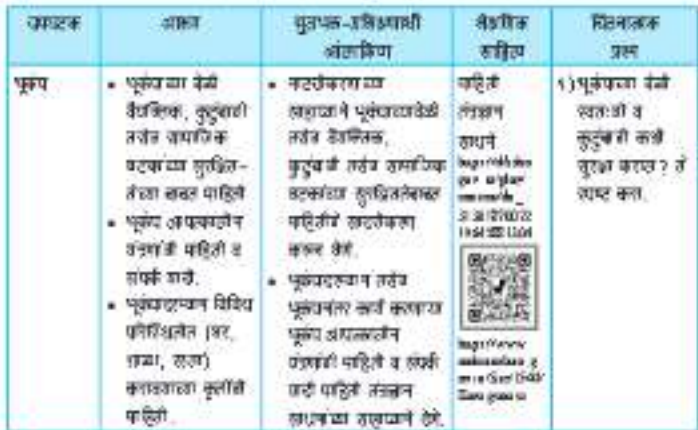 उपघटक
आशय
शैक्षणिक
साहित्य
प्रश्न
भूकंप
• भूकंपाच्या वेळी
वैयक्तिक, कुटुंबाची
तसेच सामाजिक
घटकांच्या सुरक्षित-
तेच्या बाबत माहिती
• भूकंप आपत्कालीन
यंत्रणांची माहिती व
संपर्क यादी.
• भूकंपादरम्यान विविध
परिस्थितीत (घर,
शाळा, रस्ता)
करावयाच्या कृतींची
माहिती.
•
भूकंपाच्यावेळी
तसेच वैयक्तिक,
कुटुंबाची तसेच सामाजिक
घटकांच्या सुरक्षिततेबाबत
माहितीचे सादरीकरण
करून घेणे.
• भूकंपादरम्यान तसेच
भूकंपानंतर कार्य करणाऱ्या
भूकंप आपत्कालीन
यंत्रणांची माहिती व संपर्क
यादी माहिती तंत्रज्ञान
साधनांच्या सहाय्याने घेणे.
माहिती
तंत्रज्ञान
साधने
१) भूकंपाच्या वेळी
स्वतःची व
कुटुंबाची कशी
सुरक्षा कराल? ते
स्पष्ट करा.